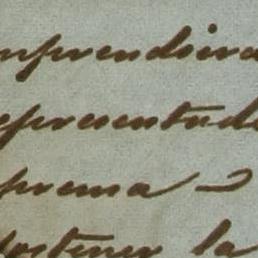 mprendiera
epresentada
prema
sostener la